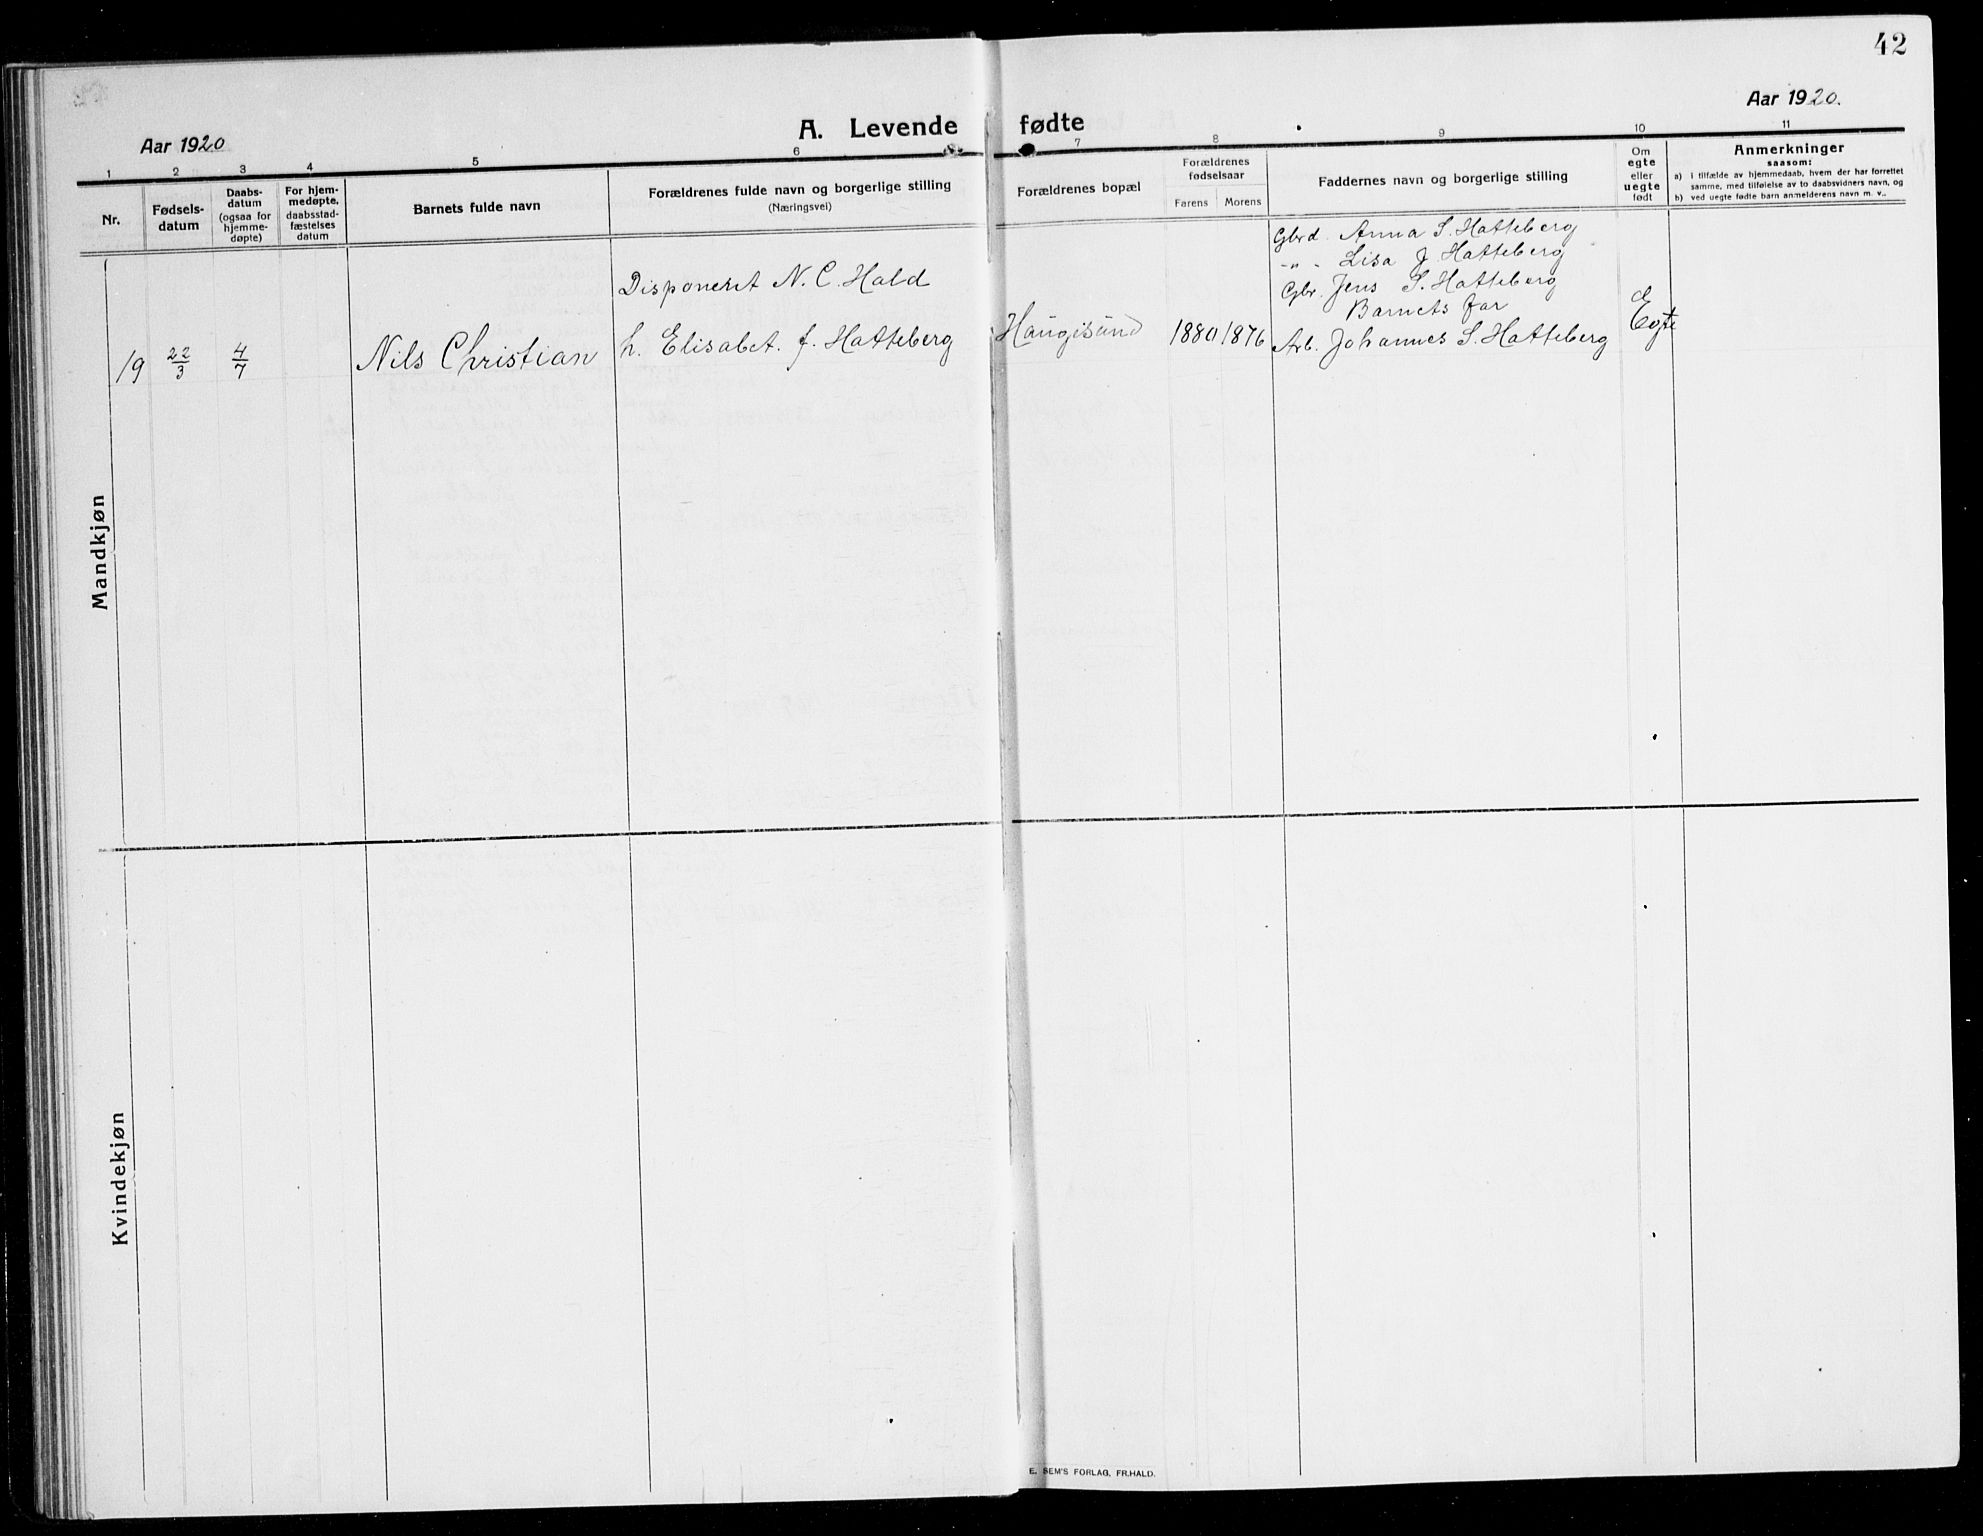 42
Aar 1920
A. Levende fødte
Aar 1920.
1 2 3 4 5 6 7 8 9 10 11
Nr.
Fødsels-
datum
Daabs-
datum
(ogsaa for
hjemme-
døpte)
For hjem-
medøpte,
daabsstad-
fæstelses
datum
Barnets fulde navn
Forældrenes fulde navn og borgerlige stilling
(Næringsvei)
Forældrenes bopæl
Forældrenes
fødselsaar
Farens Morens
Faddernes navn og borgerlige stilling
Om
egte
eller
uegte
født
Anmerkninger
saasom:
a) i tilfælde av hjemmedaab, hvem der har forrettet
samme, med tilføielse av to daabsvidners navn, og
b) ved uegte fødte barn anmelderens navn m. v..
Mandkjøn
19 22/3 4/7 Nils Christian
Disponent N. C. Hald
h. Elisabet. f. Hatteberg
Haugisund 1880 1876
Gbrd. Anna S. Hatteberg
-"- Lisa J Hatteberg
Gbr. Jens S. Hatteberg
Barnets far
Arb. Johannes S. Hatteberg
Egte
Kvindekjøn
E. SEM'S FORLAG, FR.HALD.